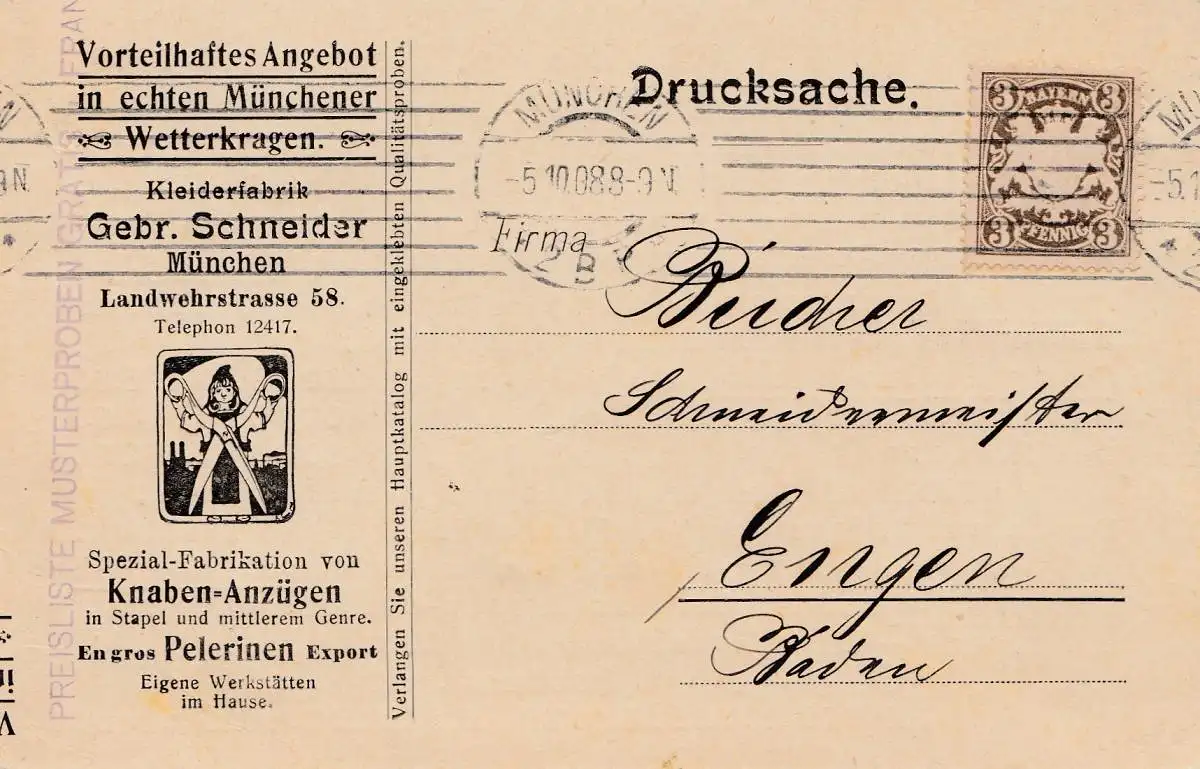 Vorteilhaftes Angebot
in echten Münchener
Wetterkragen.
Kleiderfabrik
Gebr. Schneider
München
Landwehrstrasse 58.
Telephon 12417.
Spezial-Fabrikation von
Knaben=Anzügen
in Stapel und mittlerem Genre.
En gros Pelerinen Export
Eigene Werkstätten
im Hause.
PREISLISTE MUSTERPROBEN GRATIS
Verlangen Sie unseren Hauptkatalog mit eingeklebten Qualitätsproben.
Drucksache.
MÜNCHEN
-5.10.08 8-9 N
B
3 BAYERN 3
3 PFENNIG 3
Firma
Schneidermeister
Engen
Baden